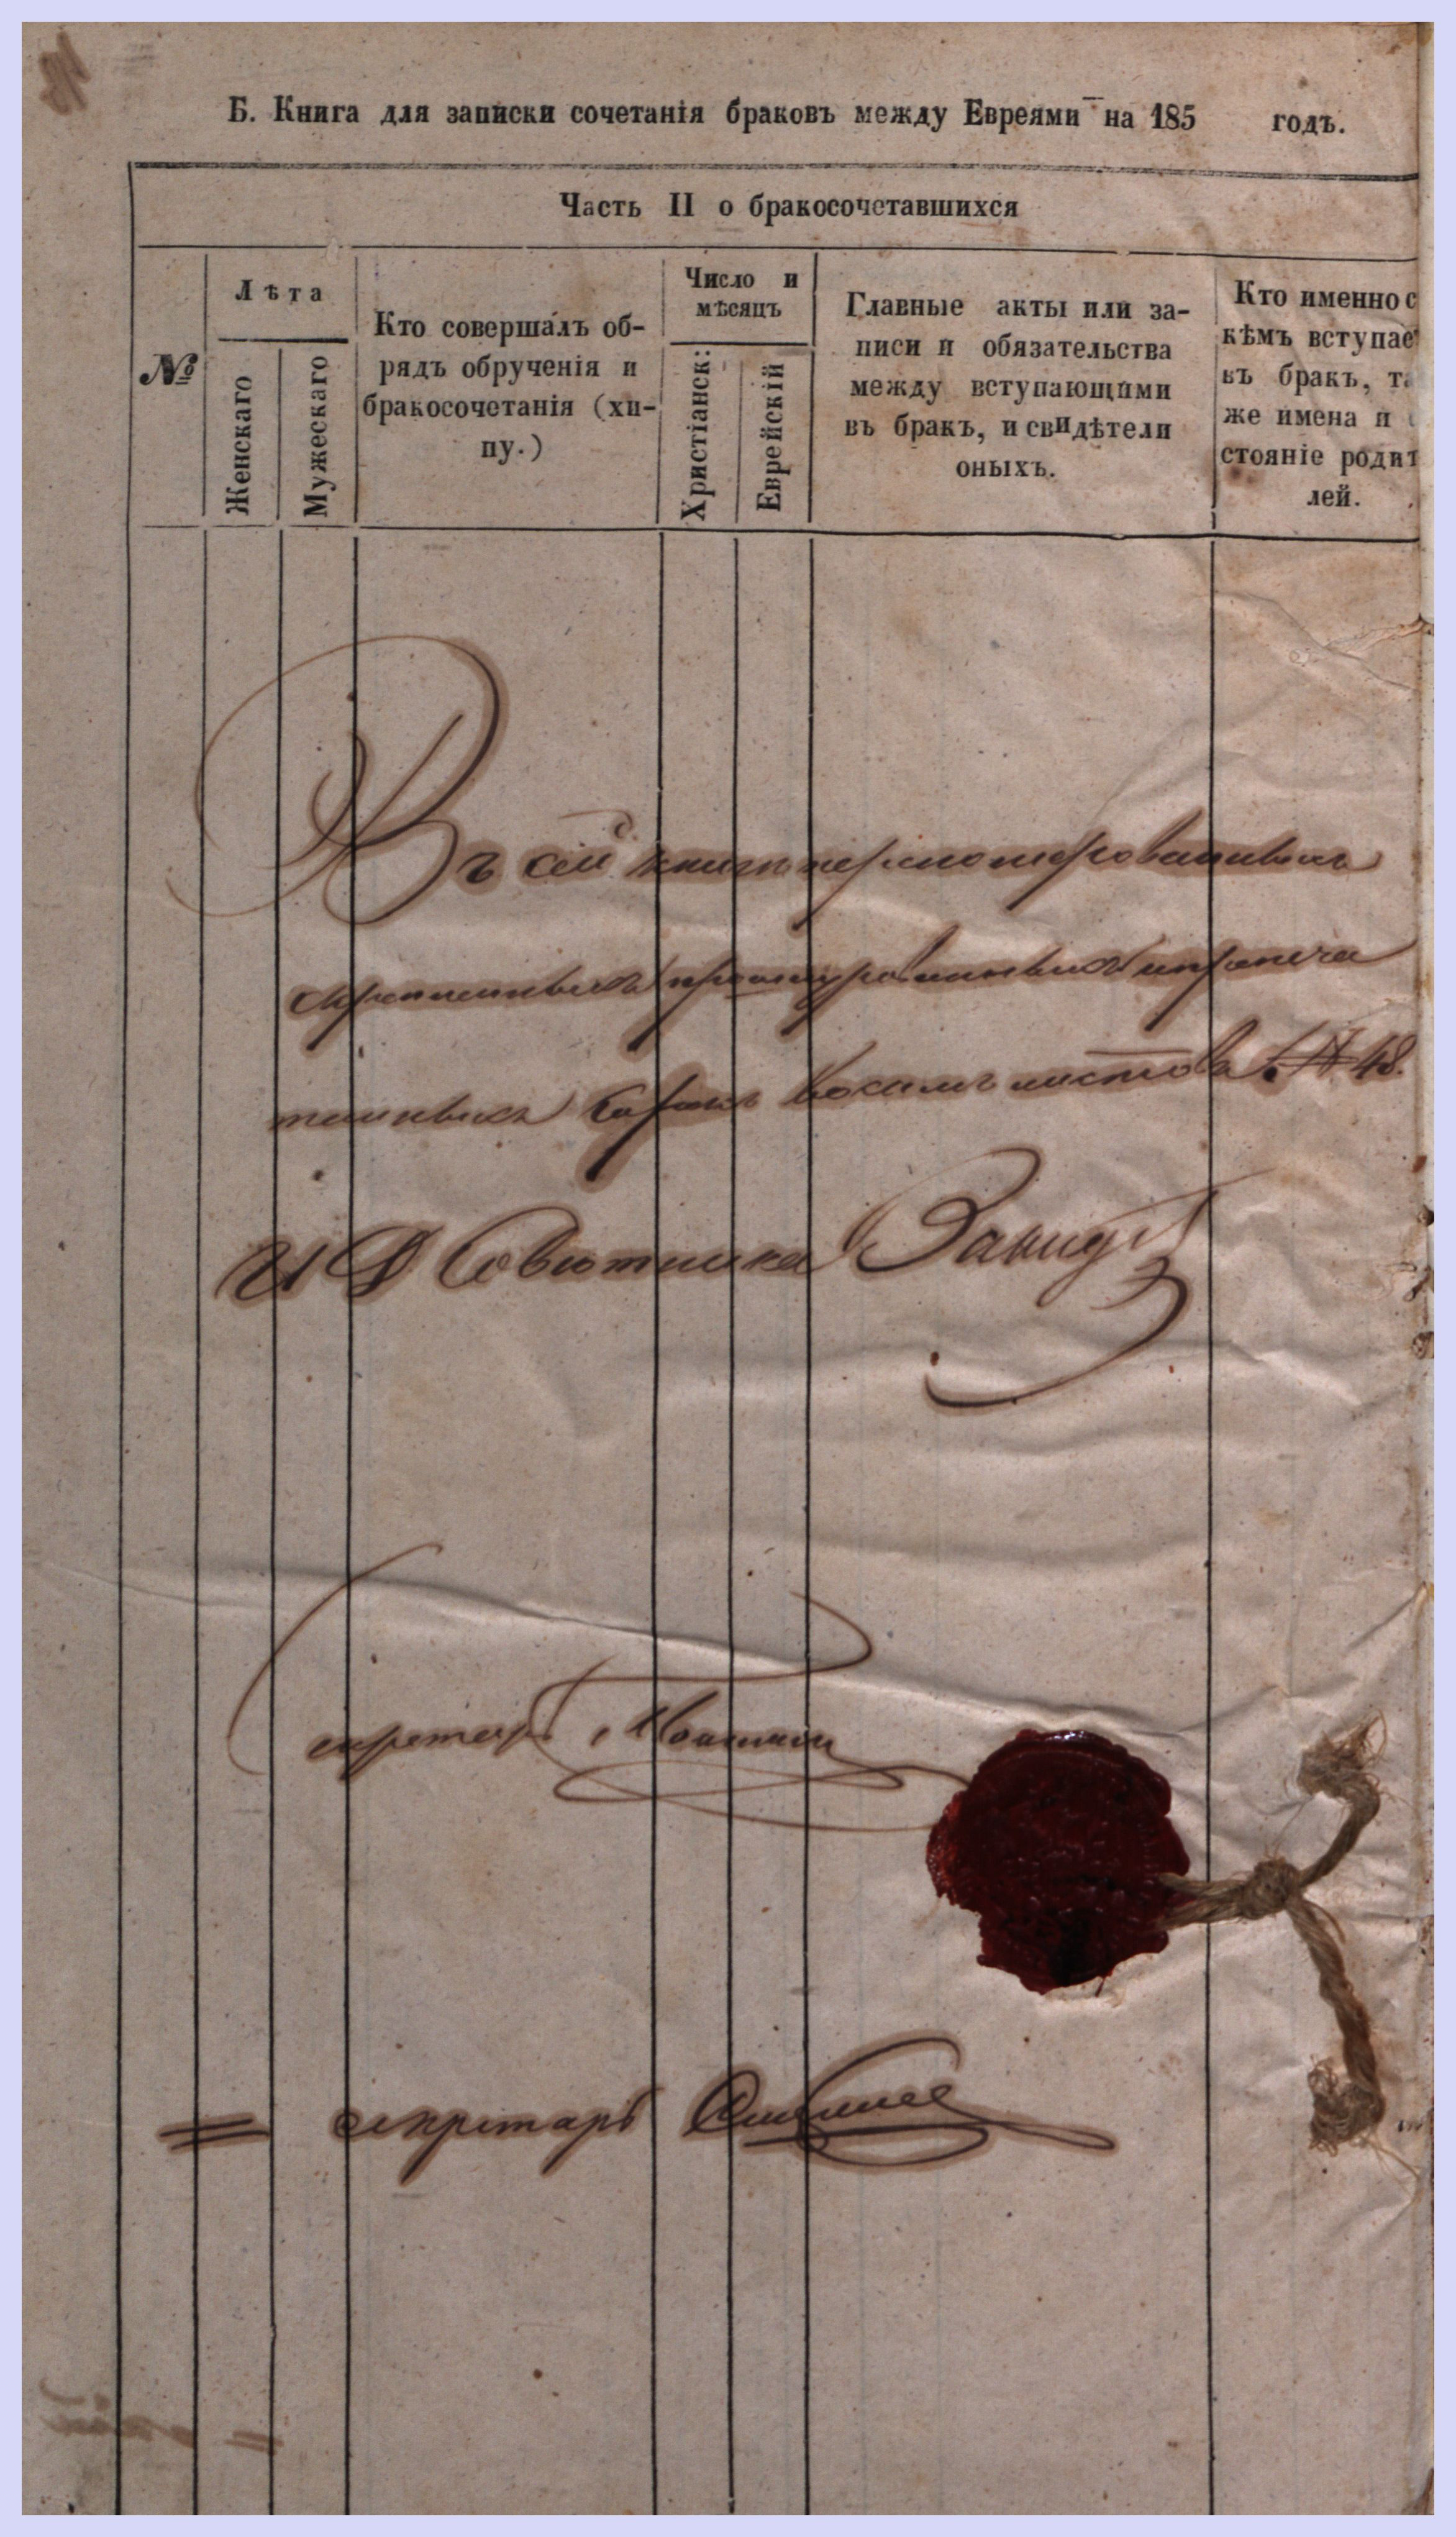 Б. Книга для записки сочетанія браковъ между Евреями на 185 годъ.
Часть II о бракосочетавшихся
№
Лѣта
Женскаго
Мужескаго
Кто совершалъ об-
рядъ обрученія и
бракосочетанія (хи-
пу.)
Число и
мѣсяцъ
Христіанск:
Еврейскій
Главные акты или за-
писи и обязательства
между вступающими
въ бракъ, и свидѣтели
оныхъ.
Кто именно с
кѣмъ вступае
въ бракъ, та
же имена и с
стояніе родит
лей.
Въ сей книгѣ перенумерованныхъ
скрепленныхъ прошнурованныхъ и припеча
танныхъ сорокъ восемь листовъ № 48.
И Д Совѣтника
секретарь
секретарь